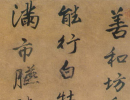 善和坊
能行白牡
滿市臙